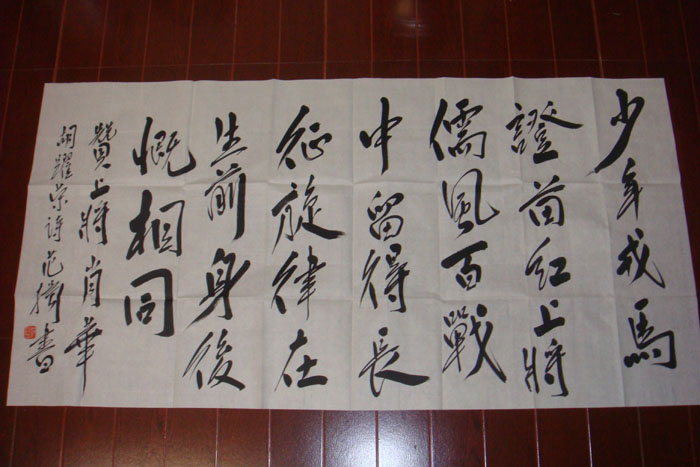 少年戎馬
證苗红上將
儒風百戰
中留得長
征旋律在
生前身後
慨相同
贊上將肖華
胡躍荣诗范璘書